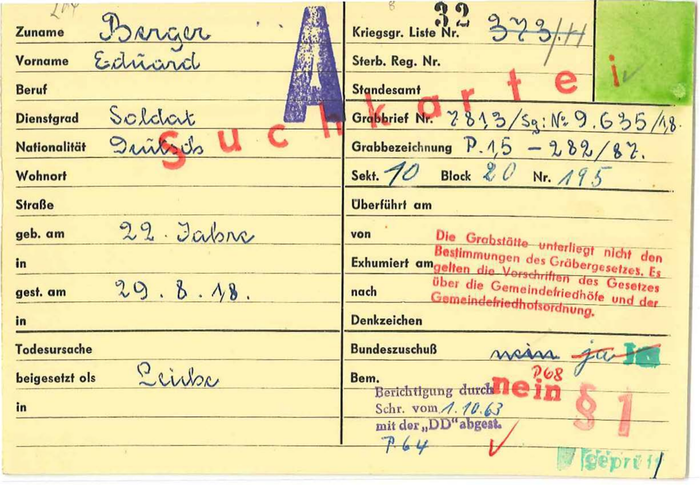 Zuname Berger
Vorname Eduard
Beruf
Dienstgrad Soldat
Nationalität Deutsch
Wohnort
Straße
geb. am 22. Jahre
in
gest. am 29. 8. 18.
in
Todesursache
beigesetzt als Leiche
in
A
Suchkartei
32
Kriegsgr. Liste Nr. 373/II
Sterb. Reg. Nr.
Standesamt
Grabbrief Nr. 7813/Sg: No 9.635/18.
Grabbezeichnung P.15 – 282/87.
Sekt. 10 Block 20 Nr. 195
Überführt am
von
Exhumiert am
nach
Die Grabstätte unterliegt nicht den
Bestimmungen des Gräbergesetzes. Es
gelten die Vorschriften des Gesetzes
über die Gemeindefriedhöfe und der
Gemeindefriedhofsordnung.
Denkzeichen
Bundeszuschuß nein ja
Bem. nein P68
Berichtigung durch
Schr. vom 1.10.63
mit der „DD" abgest.
P64
§ 1
geprüft